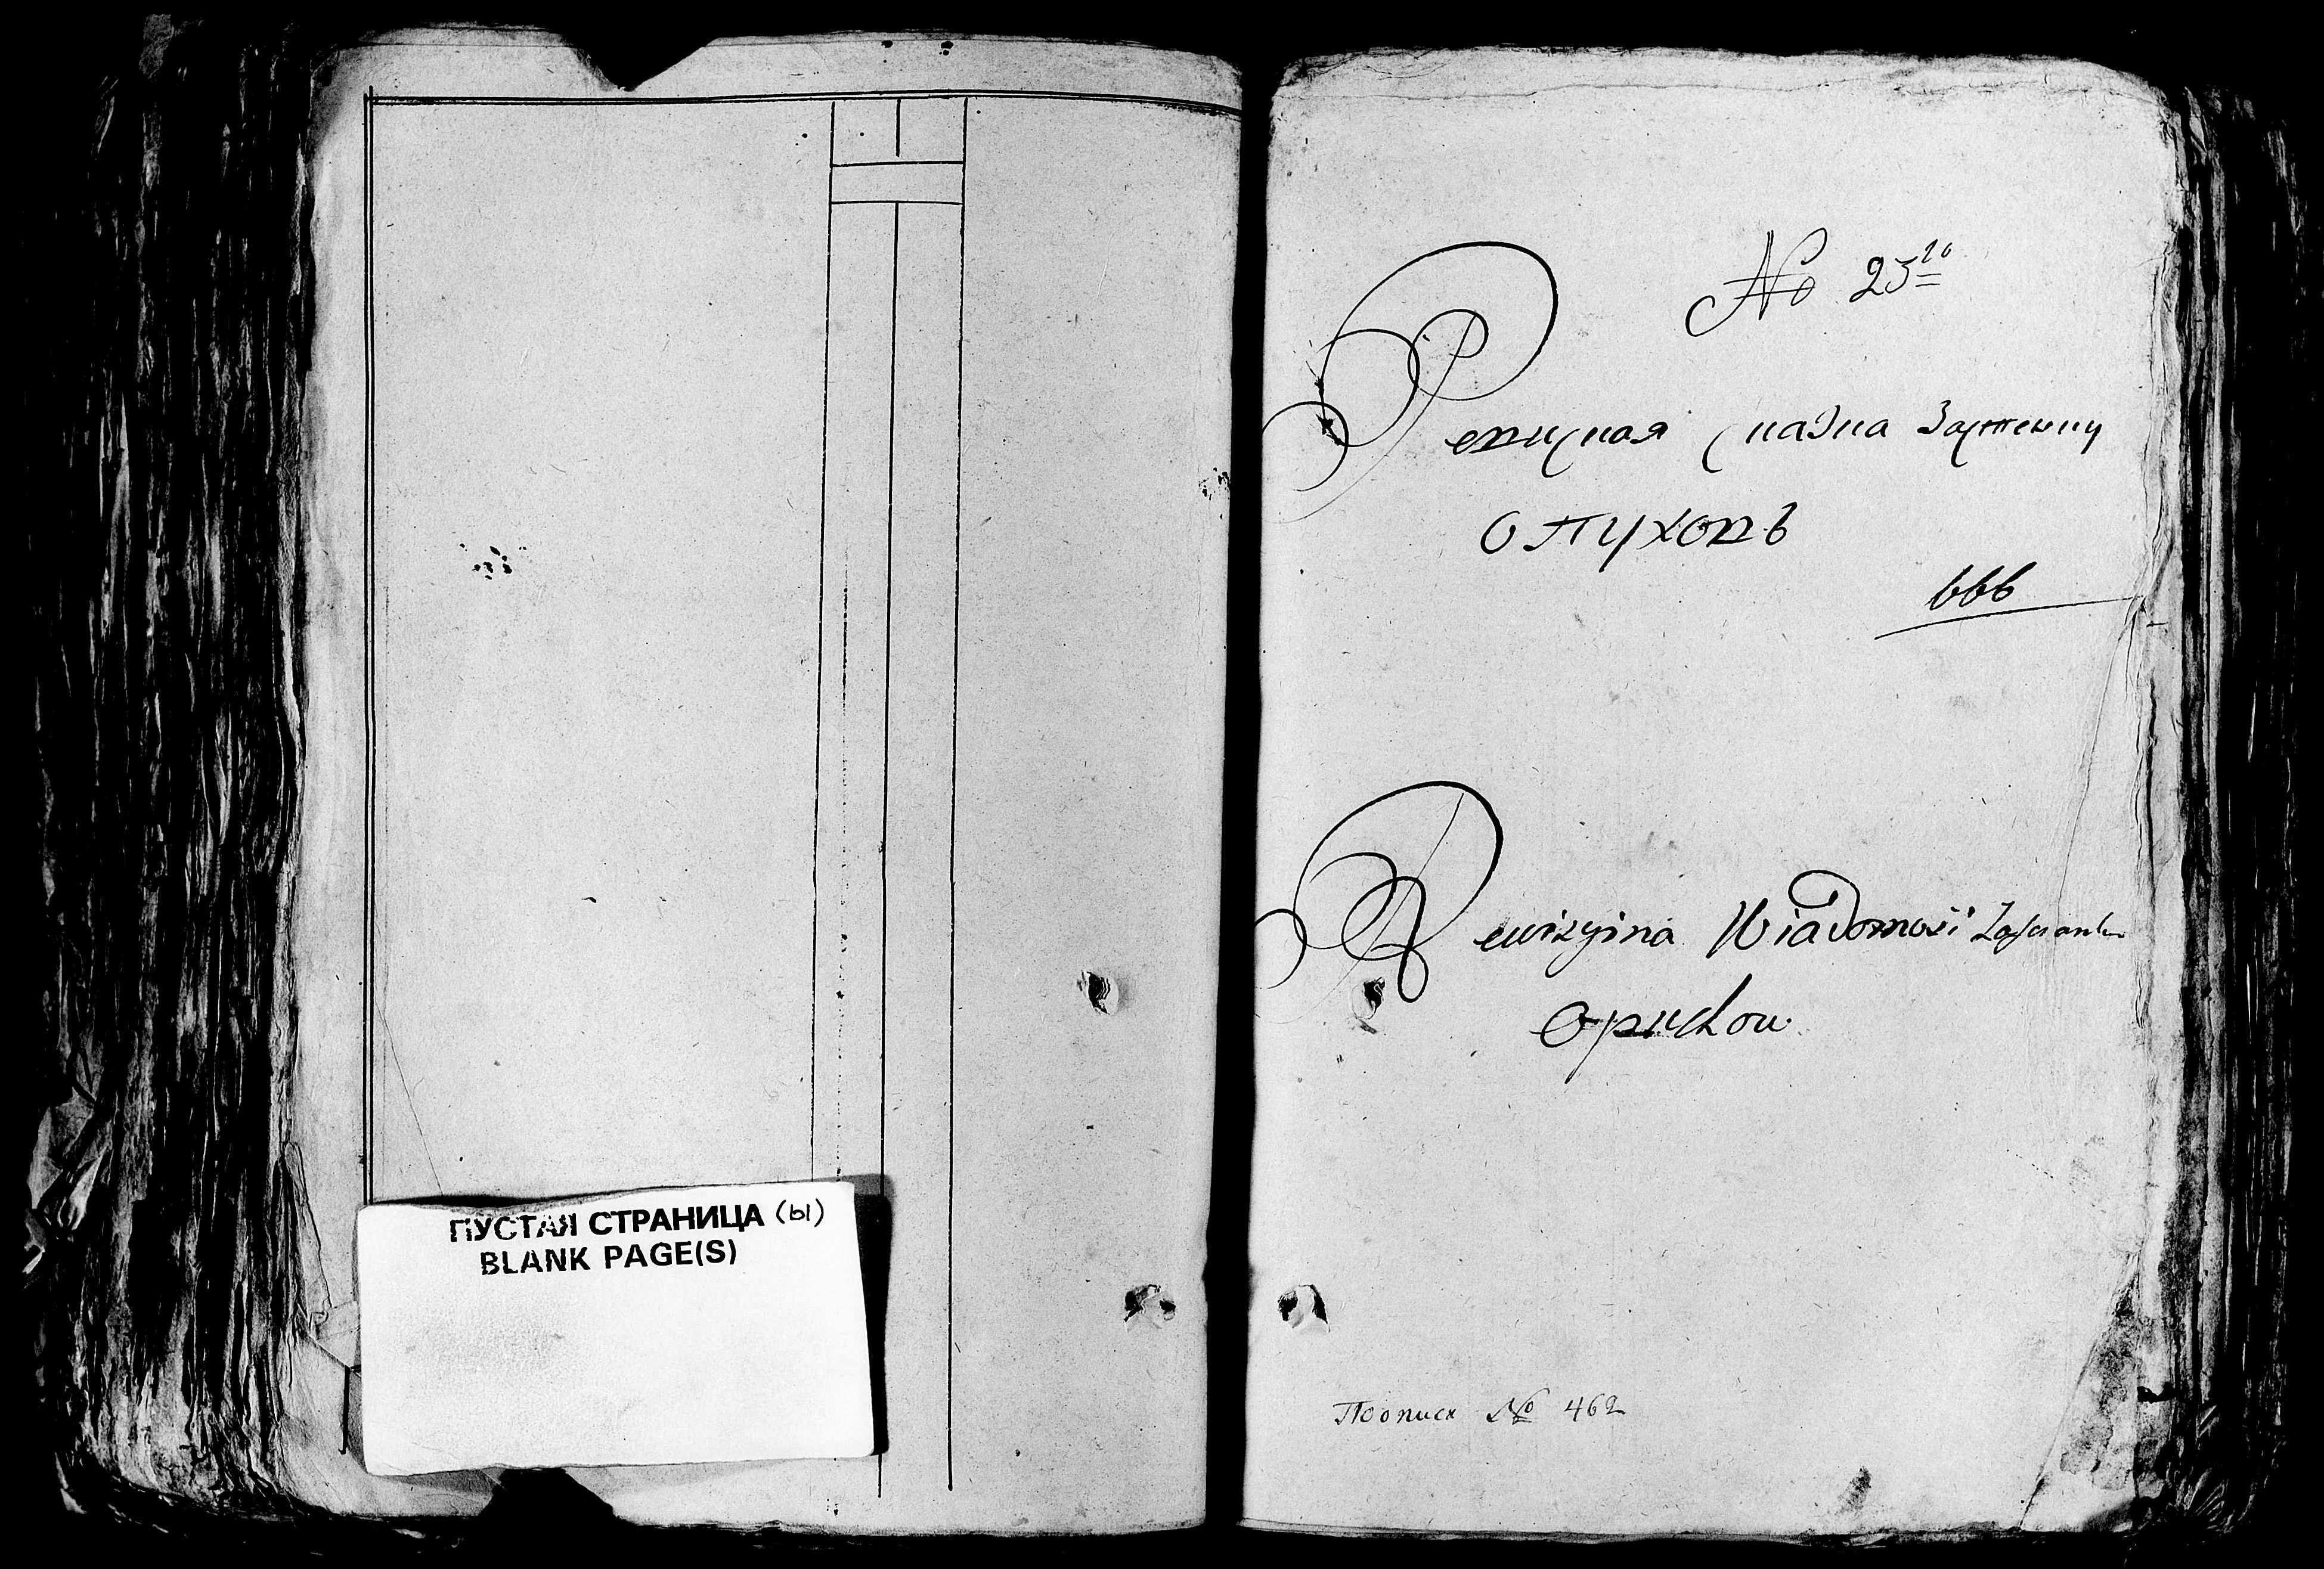 ПУСТАЯ СТРАНИЦА (ы)
BLANK PAGE(S)
№ 25го
Ревизская сказка Застенку
Опуховъ
666
Rewizyina Wiadomość Zaścianku
Opuchow
По описи № 462